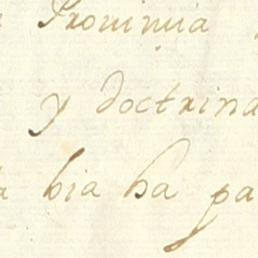 Prouinçia
y doctrina
bia ha pa